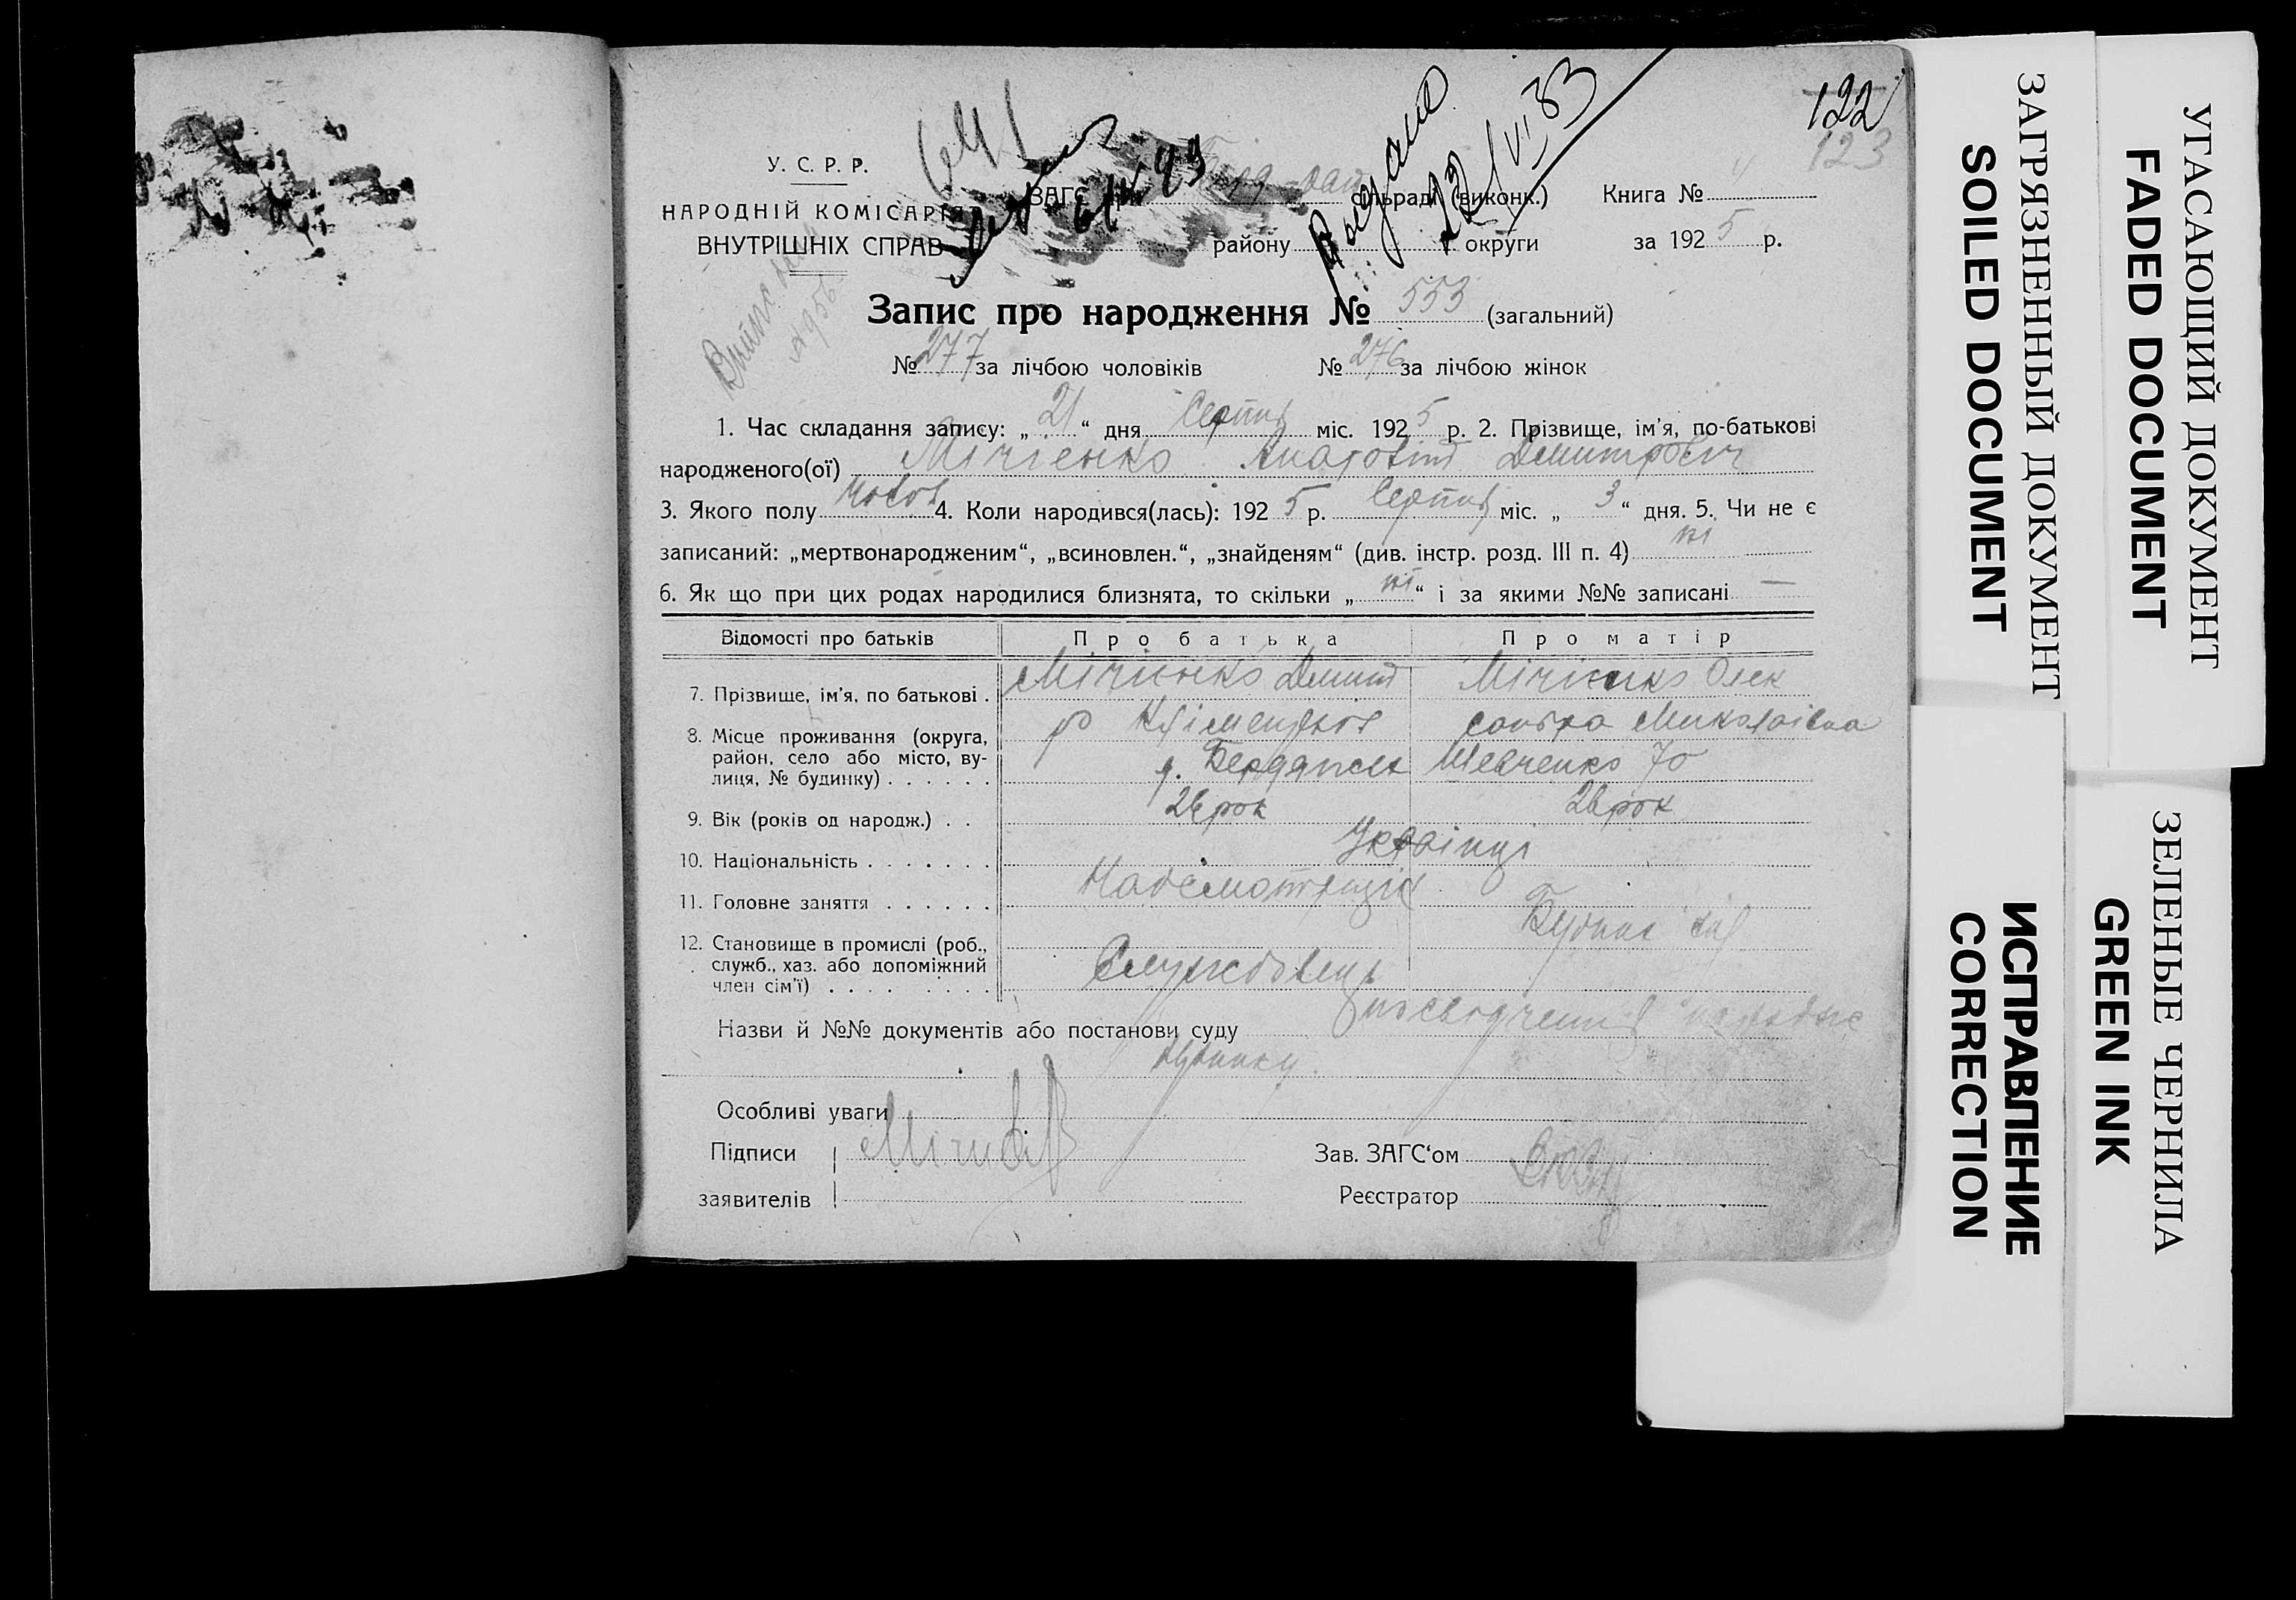 122
123
У. С. Р. Р.
НАРОДНІЙ КОМІСАРІЯТ
ВНУТРІШНІХ СПРАВ
ЗАГС при сільраді (виконк.)
району округи
Книга №
за 1925 р.
Видано
12/VI 33
Запис про народження № 553 (загальний)
№ 277 за лічбою чоловіків № 276 за лічбою жінок
1. Час складання запису: „21“ дня Серпня міс. 1925 р. 2. Прізвище, ім’я, по-батькові
народженого(ої) Мічіенко Анатолій Демитрович
3. Якого полу Чолов 4. Коли народився(лась): 1925 р. Серпня міс. „3“ дня. 5. Чи не є
записаний: „мертвонародженим“, „всиновлен.“, „знайденям“ (див. інстр. розд. III п. 4) ні
6. Як що при цих родах народилися близнята, то скільки „ні“ і за якими №№ записані —
Відомості про батьків Про батька Про матір
7. Прізвище, ім’я, по батькові . Мічіенко Демит Мічіенко Олек
8. Місце проживання (округа, сандра Миколаівна
район, село або місто, ву-
лиця, № будинку) . . . . . . Бердянськ Шевченко 70
9. Вік (років од народж.) . . 26 рок 26 рок
10. Національність . . . . . . . Українці
11. Головне заняття . . . . . .
12. Становище в промислі (роб.,
служб., хаз. або допоміжний
член сім’ї) . . . . . . . . Службовець
Назви й №№ документів або постанови суду посвідчення
будинку.
Особливі уваги
Підписи
заявителів
Зав. ЗАГС‘ом
Реєстратор
ЗАГРЯЗНЕННЫЙ ДОКУМЕНТ
SOILED DOCUMENT
УГАСАЮЩИЙ ДОКУМЕНТ
FADED DOCUMENT
ИСПРАВЛЕНИЕ
CORRECTION
ЗЕЛЕНЫЕ ЧЕРНИЛА
GREEN INK